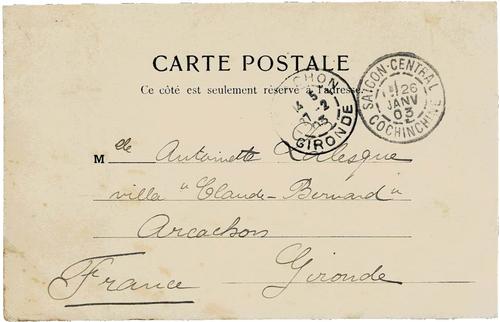 CARTE POSTALE
Ce côté est seulement réservé à l'adresse.
CHON
5
7-2
03
GIRONDE
SAIGON-CENTRAL
26
JANV
03
COCHINCHINE
Mlle Antoinette
villa "Claude-Bernard"
Arcachon
Gironde
France